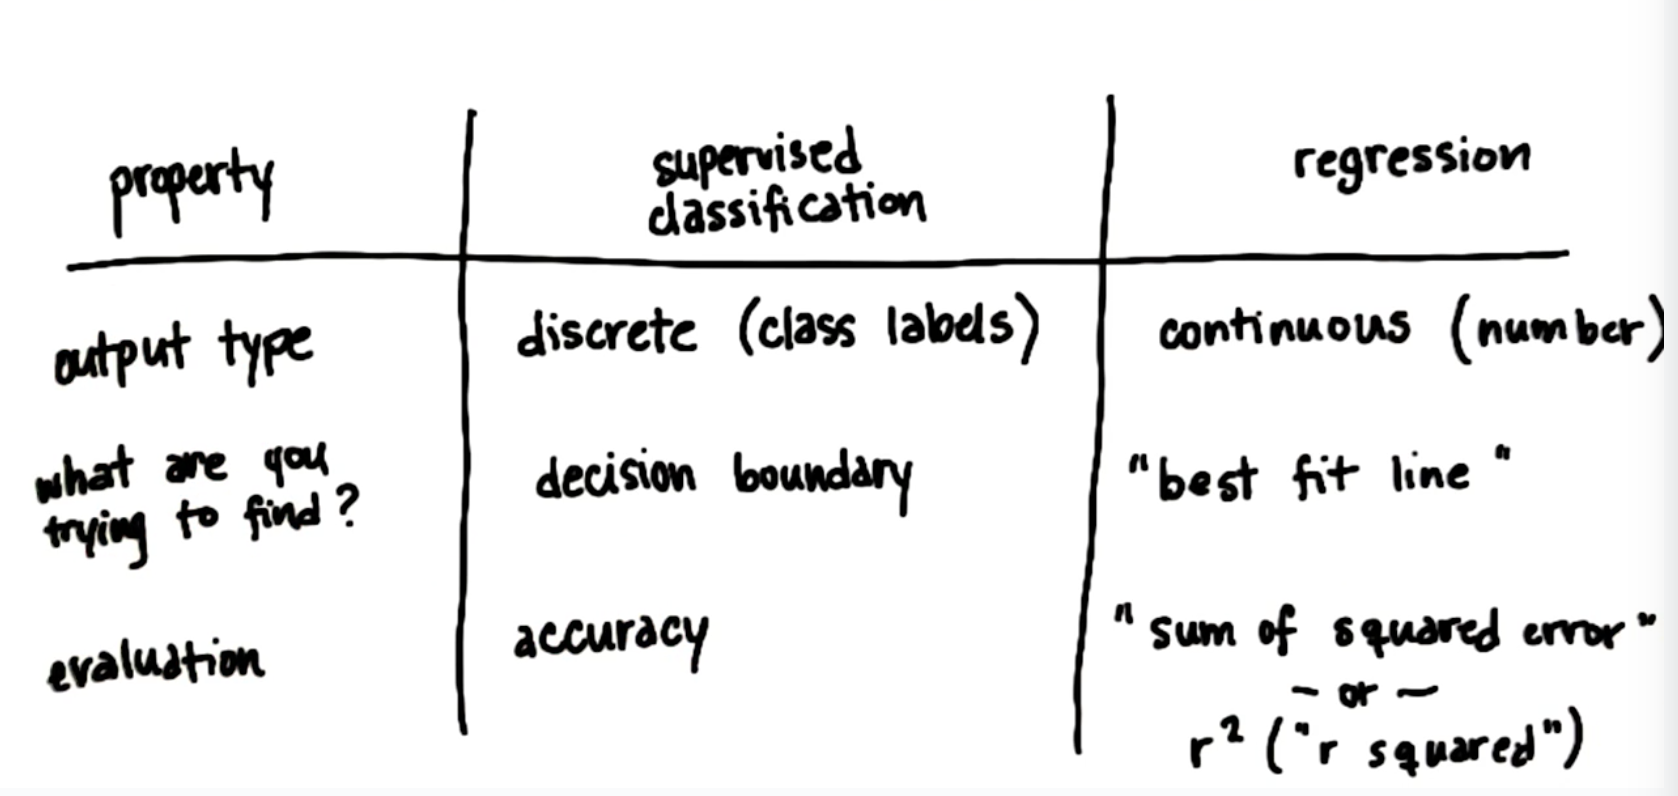 property
supervised
classification
regression
output type
discrete (class labels)
continuous (number)
what are you
trying to find?
decision boundary
"best fit line"
evaluation
accuracy
"sum of squared error"
- or -
r² ("r squared")